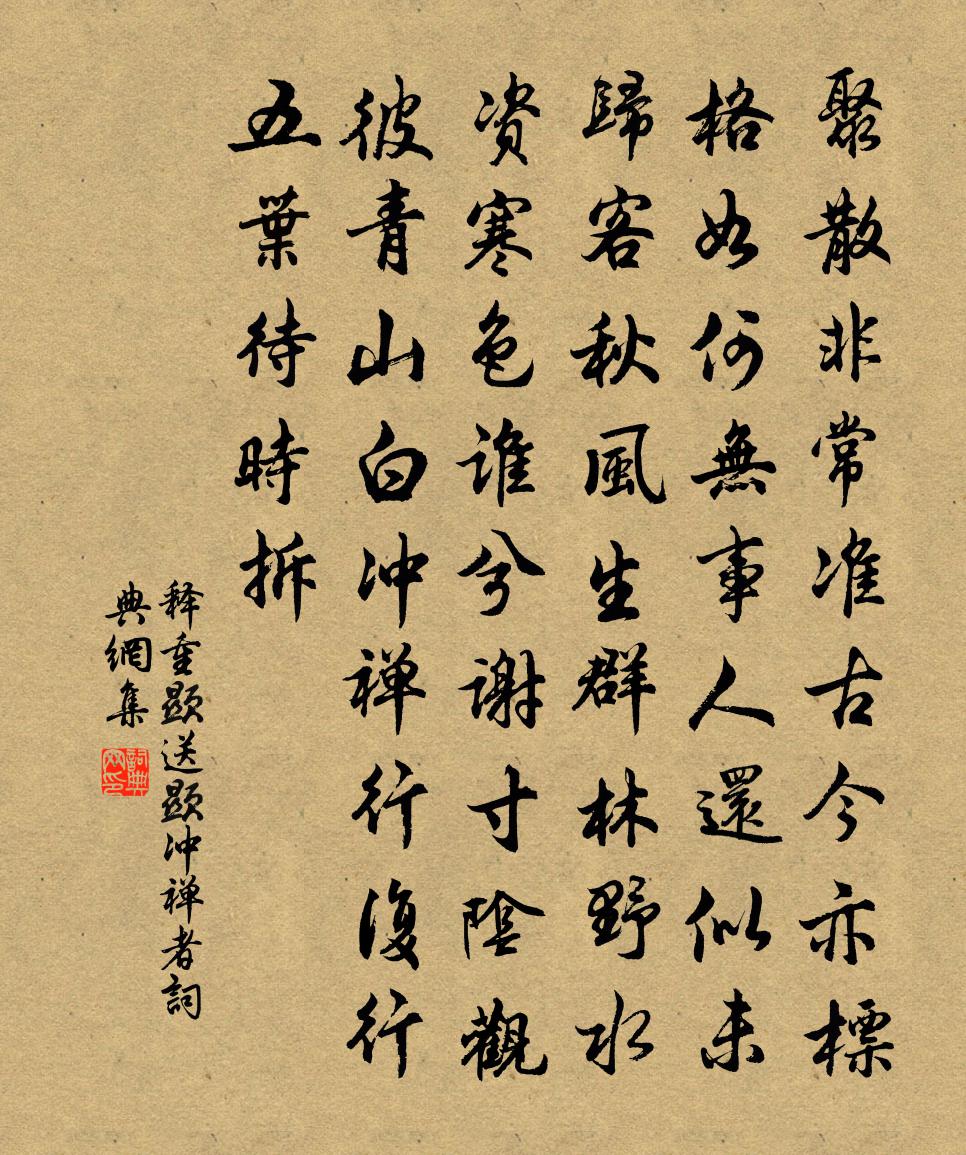 聚散非常准古今亦標
格如何無事人還似未
歸客秋風生群林野水
资寒色谁兮谢寸陰觀
彼青山白冲禅行復行
五葉待時拆
释重顯送顯冲禅者詞
典網集
詞典网印